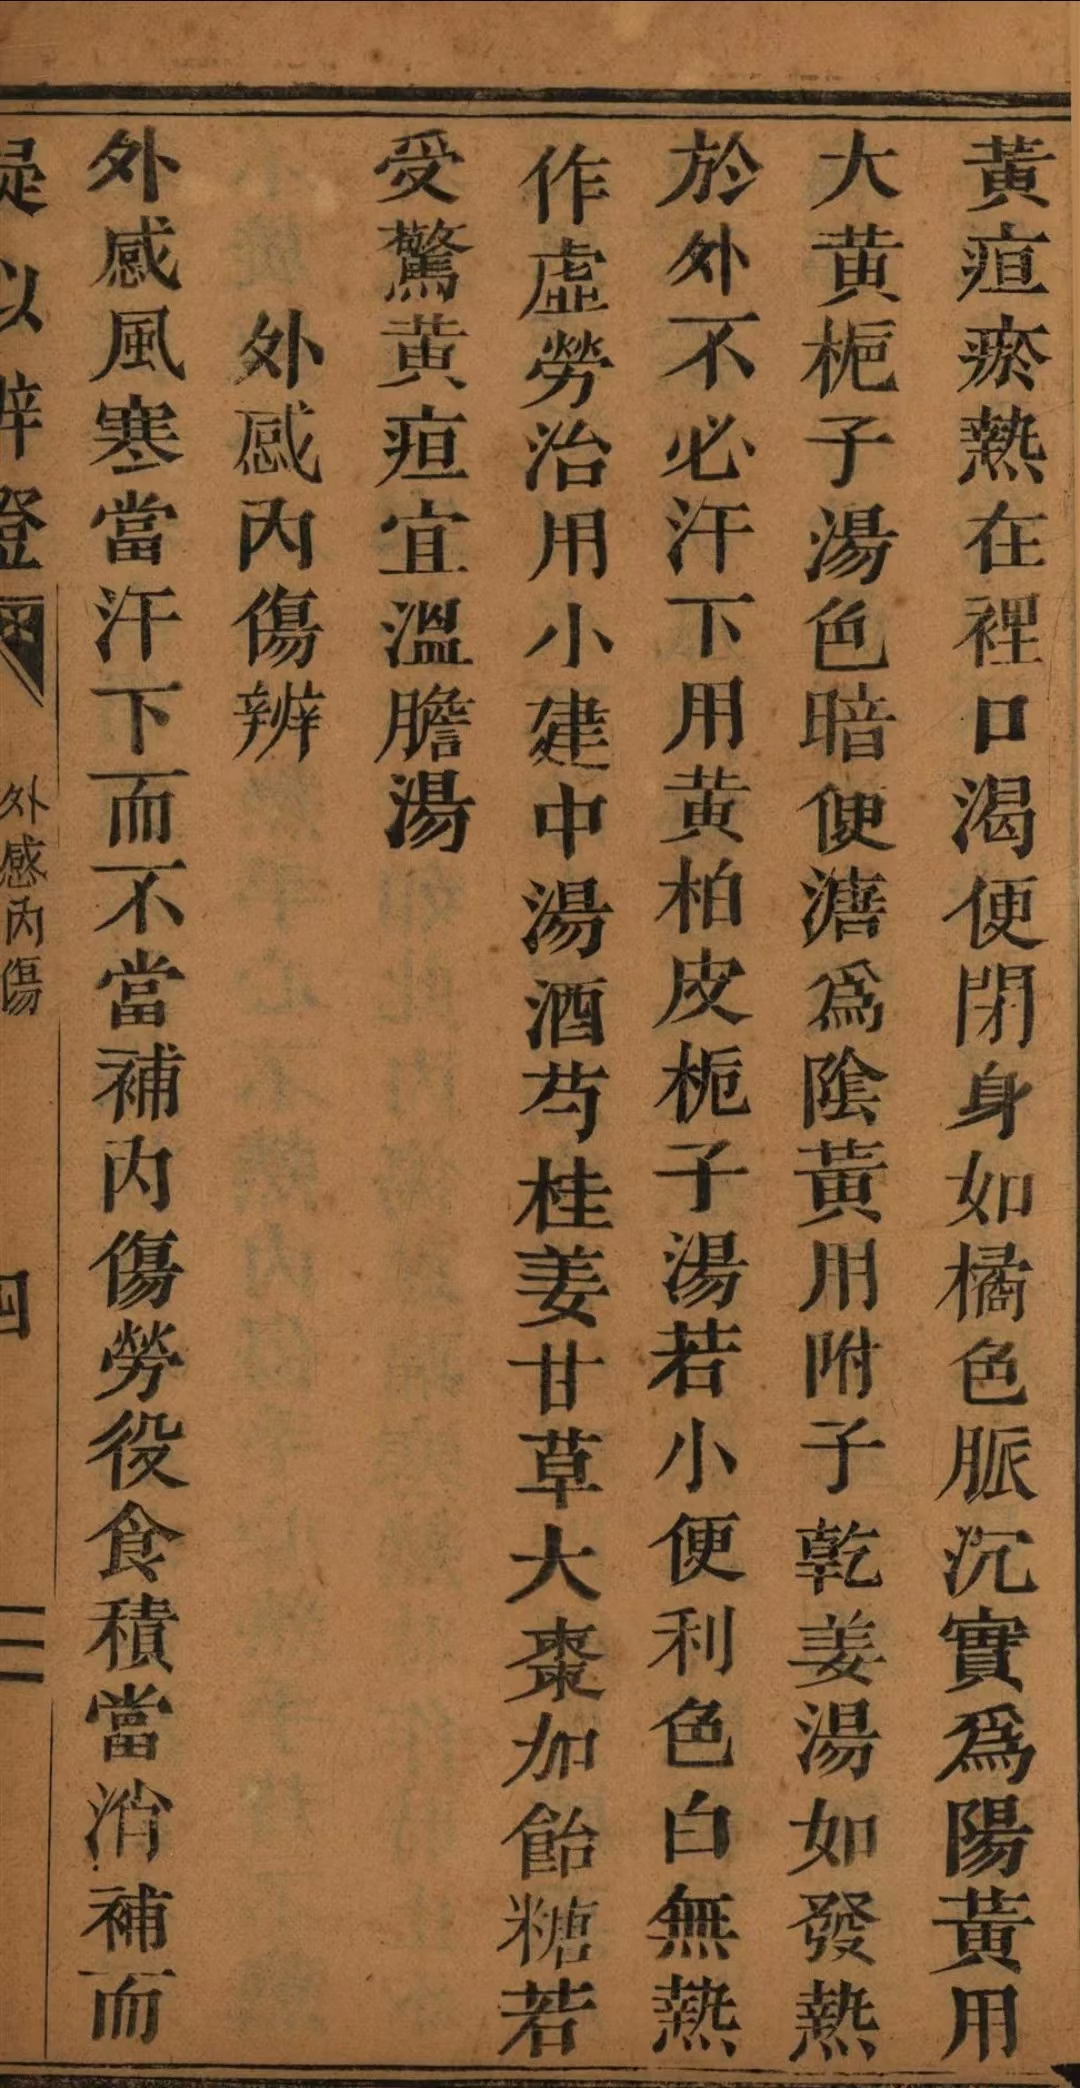 黃疸瘀熱在裡口渴便閉身如橘色脈沉實爲陽黃用
大黄梔子湯色暗便溏爲陰黃用附子乾姜湯如發熱
於外不必汗下用黄柏皮梔子湯若小便利色白無熱
作虛勞治用小建中湯酒芍桂姜甘草大棗加飴糖若
受驚黄疸宜溫膽湯
外感內傷辨
外感風寒當汗下而不當補內傷勞役食積當消補而
疑似辨證
外感內傷
四